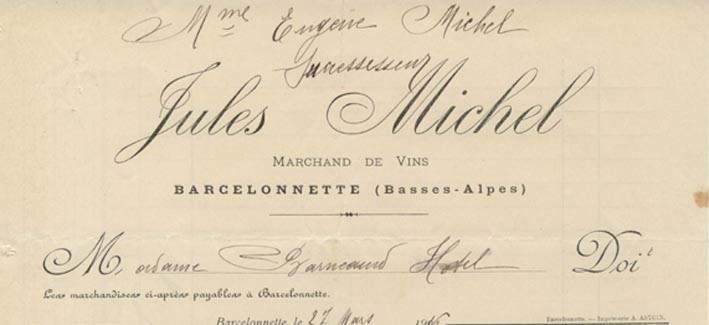 Mme Eugène Michel
Successeur
Jules Michel
MARCHAND DE VINS
BARCELONNETTE (Basses-Alpes)
Madame Barneaud Hotel Doit
Les marchandises ci-après payables à Barcelonnette.
Barcelonnette. — Imprimerie A. ASTOIN.
Barcelonnette, le 27 Mars